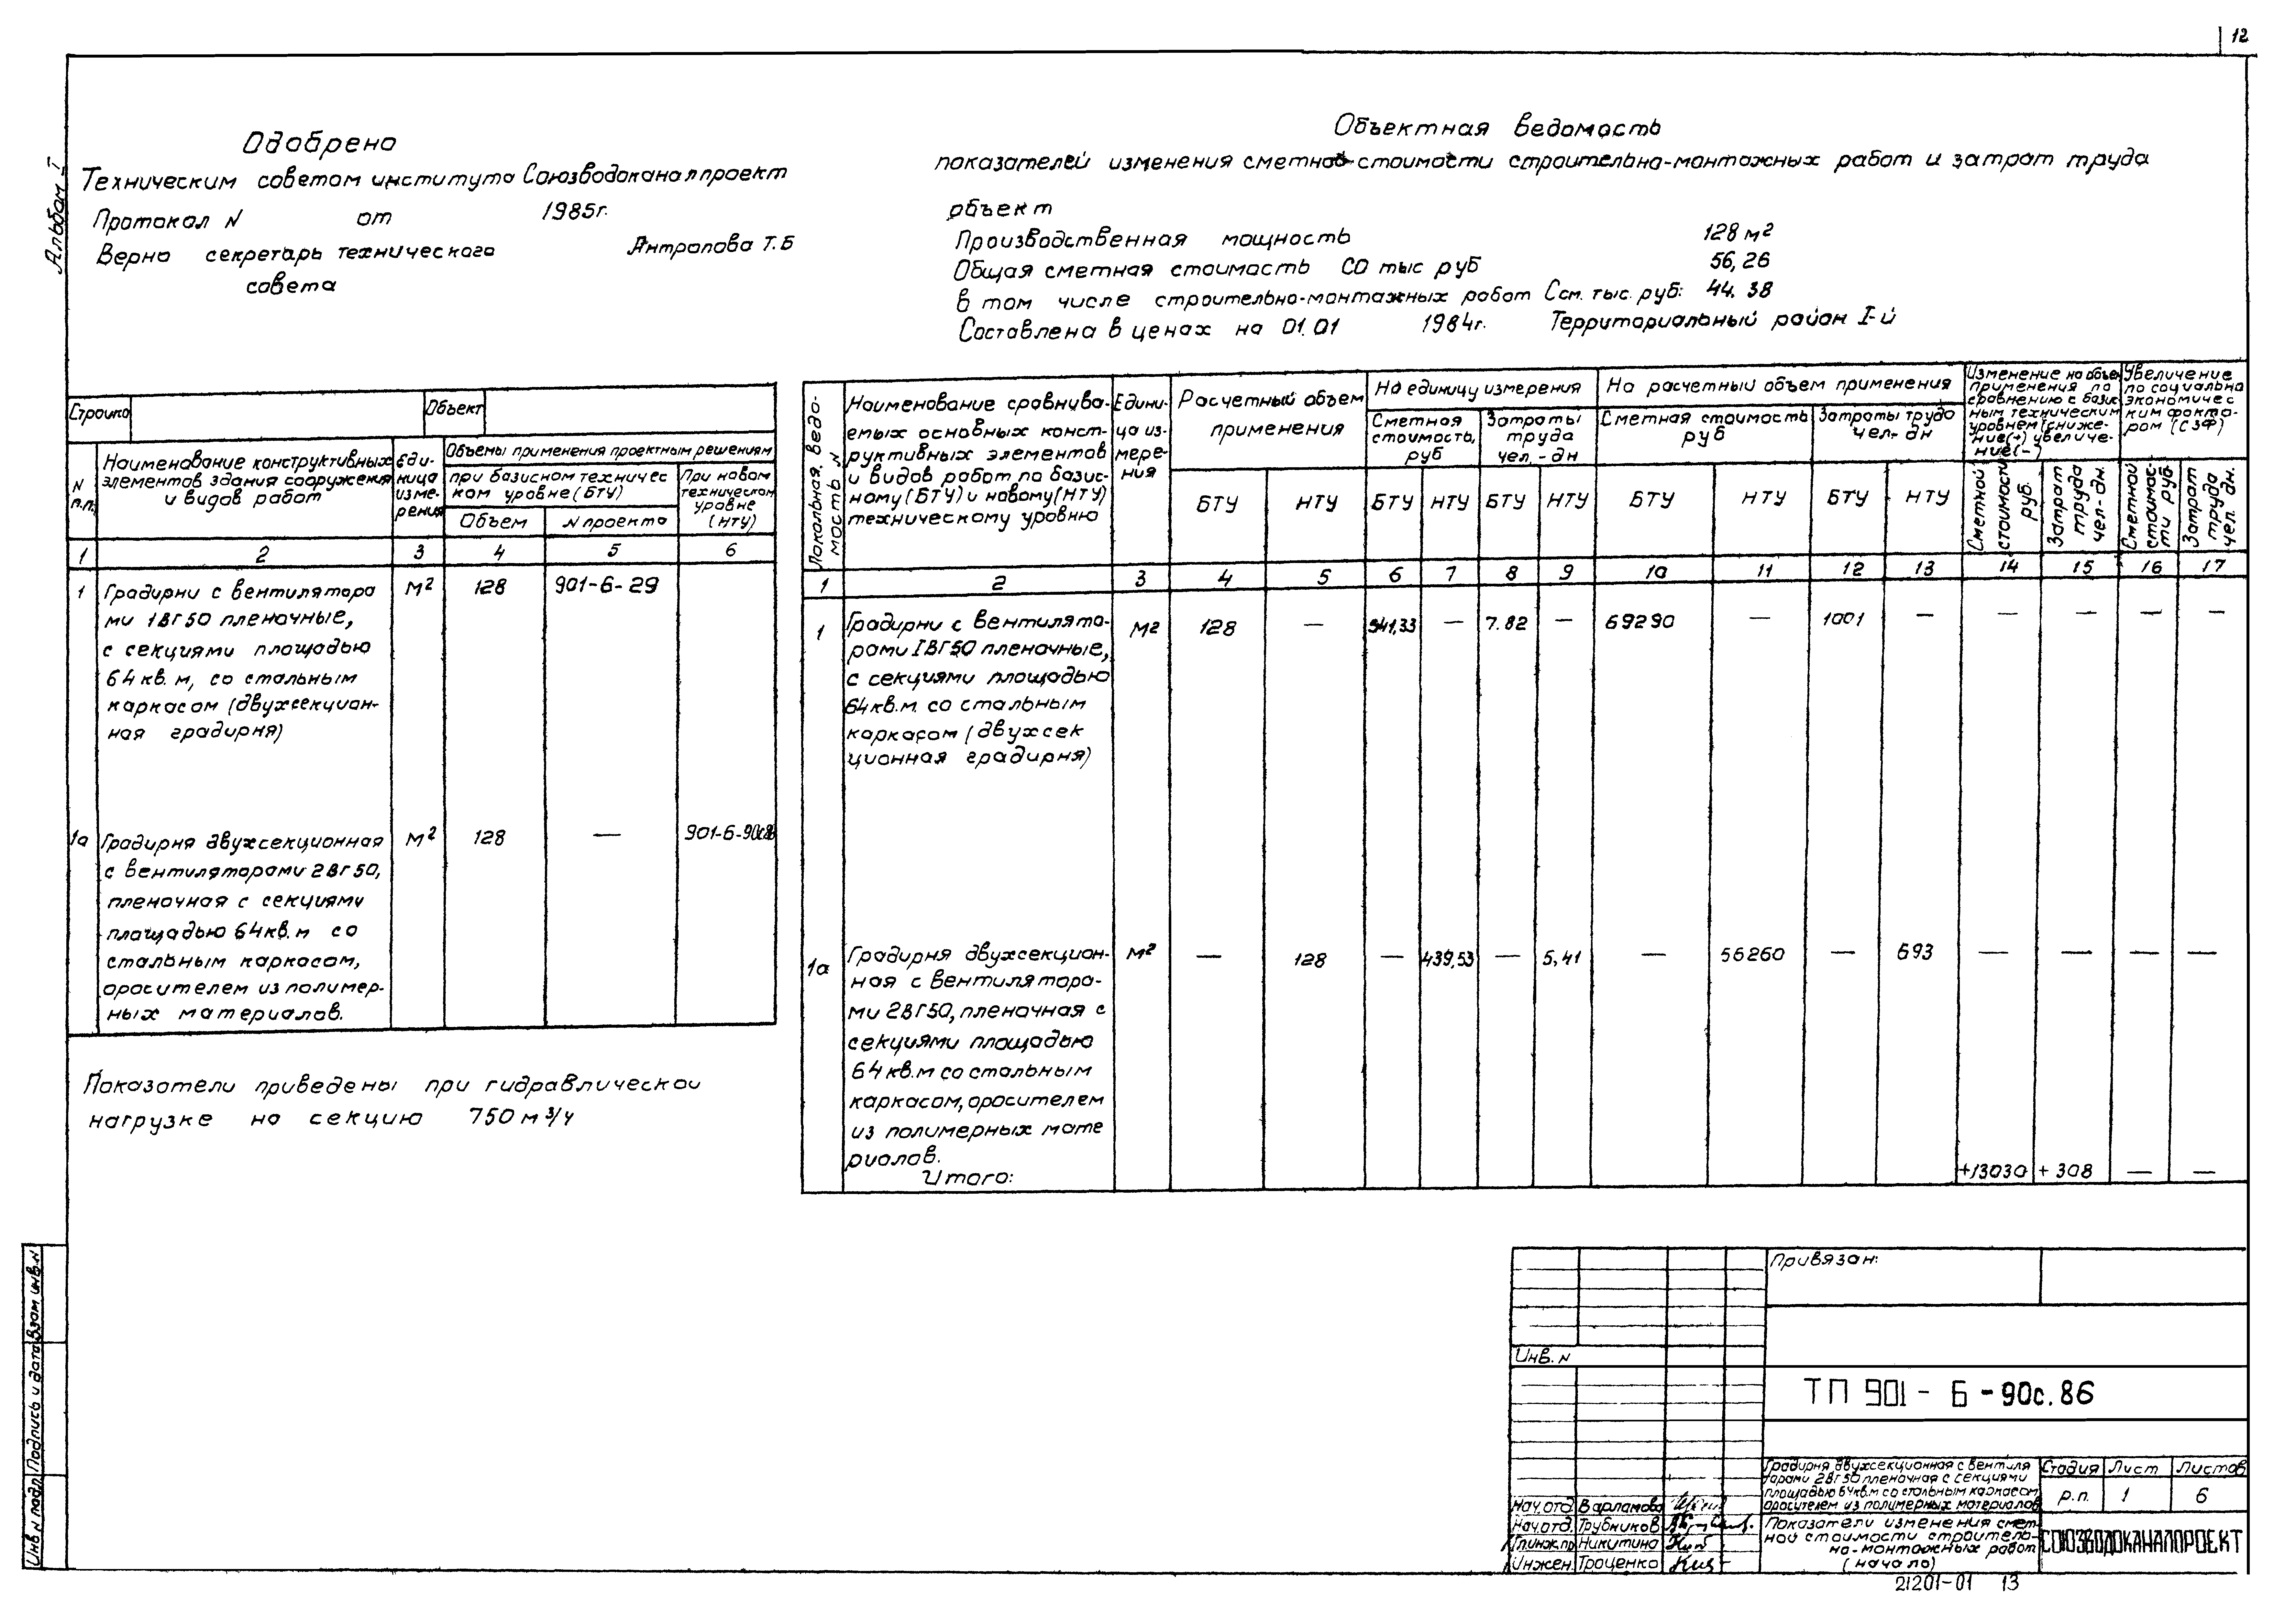 12
Альбом I
Одобрено
Техническим советом института Союзводоканалпроект
Протокол N от 1985г.
Верно секретарь технического Антропова Т.Б
совета
Объектная ведомость
показателей изменения сметной стоимости строительно-монтажных работ и затрат труда
объект
Производственная мощность 128 м²
Общая сметная стоимость СО тыс руб 56,26
в том числе строительно-монтажных работ Ссм. тыс. руб: 44.38
Составлена в ценах на 01.01 1984г. Территориальный район I-й
Стройка
Объект
N п.п.
Наименование конструктивных
элементов здания сооружения
и видов работ
Еди-
ница
изме-
рения
Объемы применения проектным решениям
при базисном техничес
ком уровне (БТУ)
При новом
техническом
уровне
(НТУ)
Объем N проекта
1 2 3 4 5 6
1 Градирни с вентилятора м² 128 901-6-29
ми 1ВГ50 пленочные,
с секциями площадью
64 кв. м, со стальным
каркасом (двухсекцион-
ная градирня)
1а Градирня двухсекционная м² 128 — 901-6-90с.86
с вентиляторами 2ВГ50,
пленочная с секциями
площадью 64 кв. м со
стальным каркасом,
оросителем из полимер-
ных материалов.
Показатели приведены при гидравлической
нагрузке на секцию 750 м³/ч
Локальная ведо-
мость N
Наименование сравнива-
емых основных конст-
руктивных элементов
и видов работ по базис-
ному (БТУ) и новому (НТУ)
техническому уровню
Едини-
ца из-
мере-
ния
Расчетный объем
применения
На единицу измерения
Сметная
стоимость,
руб
Затраты
труда
чел. - дн
На расчетный объем применения
Сметная стоимость
руб
Затраты труда
чел- дн
Изменение на объем
применения по
сравнению с базис
ным техническим
уровнем (сниже-
ние(+) увеличе-
ние(-)
Увеличение
по социально
экономичес
ким факто-
рам (СЗФ)
БТУ НТУ БТУ НТУ БТУ НТУ БТУ НТУ БТУ НТУ
Сметной
стоимости
руб.
Затрат
труда
чел- дн.
Сметной
стоимос-
ти руб
Затрат
труда
чел. дн.
1 2 3 4 5 6 7 8 9 10 11 12 13 14 15 16 17
1 Градирни с вентилято- м2 128 — 541,33 — 7.82 — 69290 — 1001 — — — — —
рами 1ВГ50 пленочные,
с секциями площадью
64 кв. м. со стальным
каркасом (двухсек
ционная градирня)
1а Градирня двухсекцион- м² — 128 — 439,53 — 5,41 — 56260 — 693 — — — —
ная с вентилятора-
ми 2ВГ50, пленочная с
секциями площадью
64 кв. м со стальным
каркасом, оросителем
из полимерных мате
риалов.
Итого: +13030 + 308 — —
Инв N подл Подпись и дата Взам инв. N
Привязан:
Инв. N
ТП 901 - 6 - 90с. 86
Градирня двухсекционная с вентиля
торами 2ВГ50 пленочная с секциями
площадью 64кв.м со стальным каркасом
оросителем из полимерных материалов
Стадия Лист Листов
р.п. 1 6
Нач. отд. Варламова
Нач. отд. Трубников
Гл.инж.пр Никитина
Инжен. Троценко
Показатели изменения смет-
ной стоимости строитель-
но-монтажных работ
(начало)
СОЮЗВОДОКАНАЛПРОЕКТ
21201-01 13